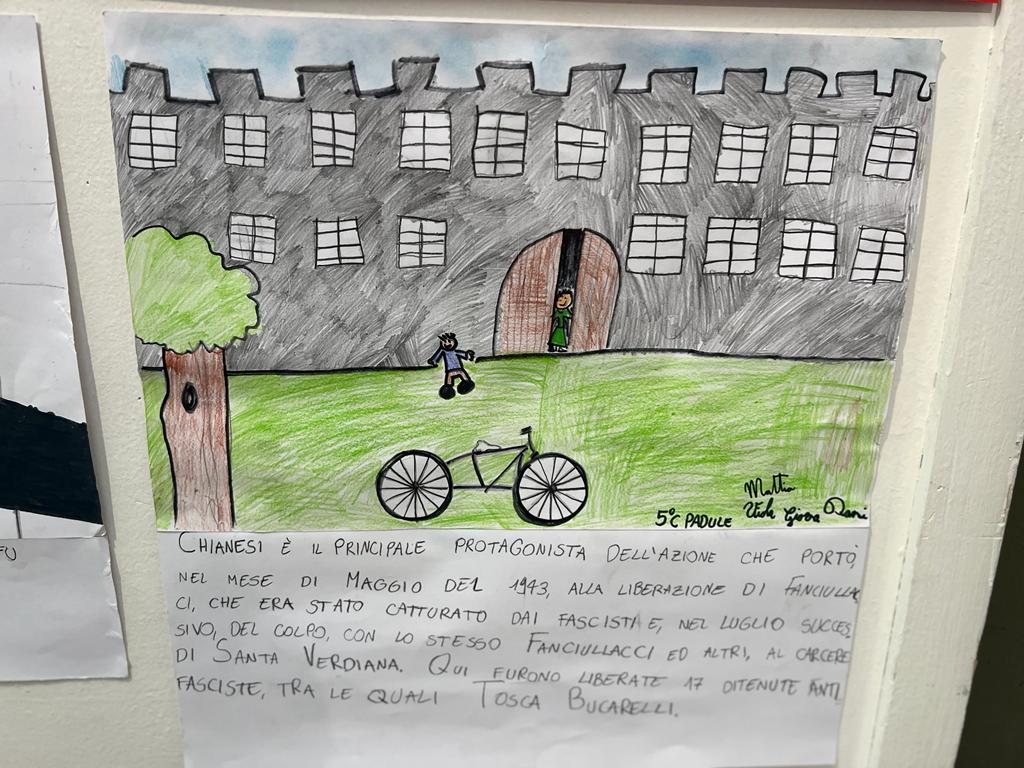 Mattia
5°C PADULE Viola Giova Dani
CHIANESI È IL PRINCIPALE PROTAGONISTA DELL'AZIONE CHE PORTÒ,
NEL MESE DI MAGGIO DEL 1943, ALLA LIBERAZIONE DI FANCIULLA
CI, CHE ERA STATO CATTURATO DAI FASCISTI E, NEL LUGLIO SUCCES
SIVO, DEL COLPO, CON LO STESSO FANCIULLACCI ED ALTRI, AL CARCERE
DI SANTA VERDIANA. QUI FURONO LIBERATE 17 DITENUTE ANTI
FASCISTE, TRA LE QUALI TOSCA BUCARELLI.